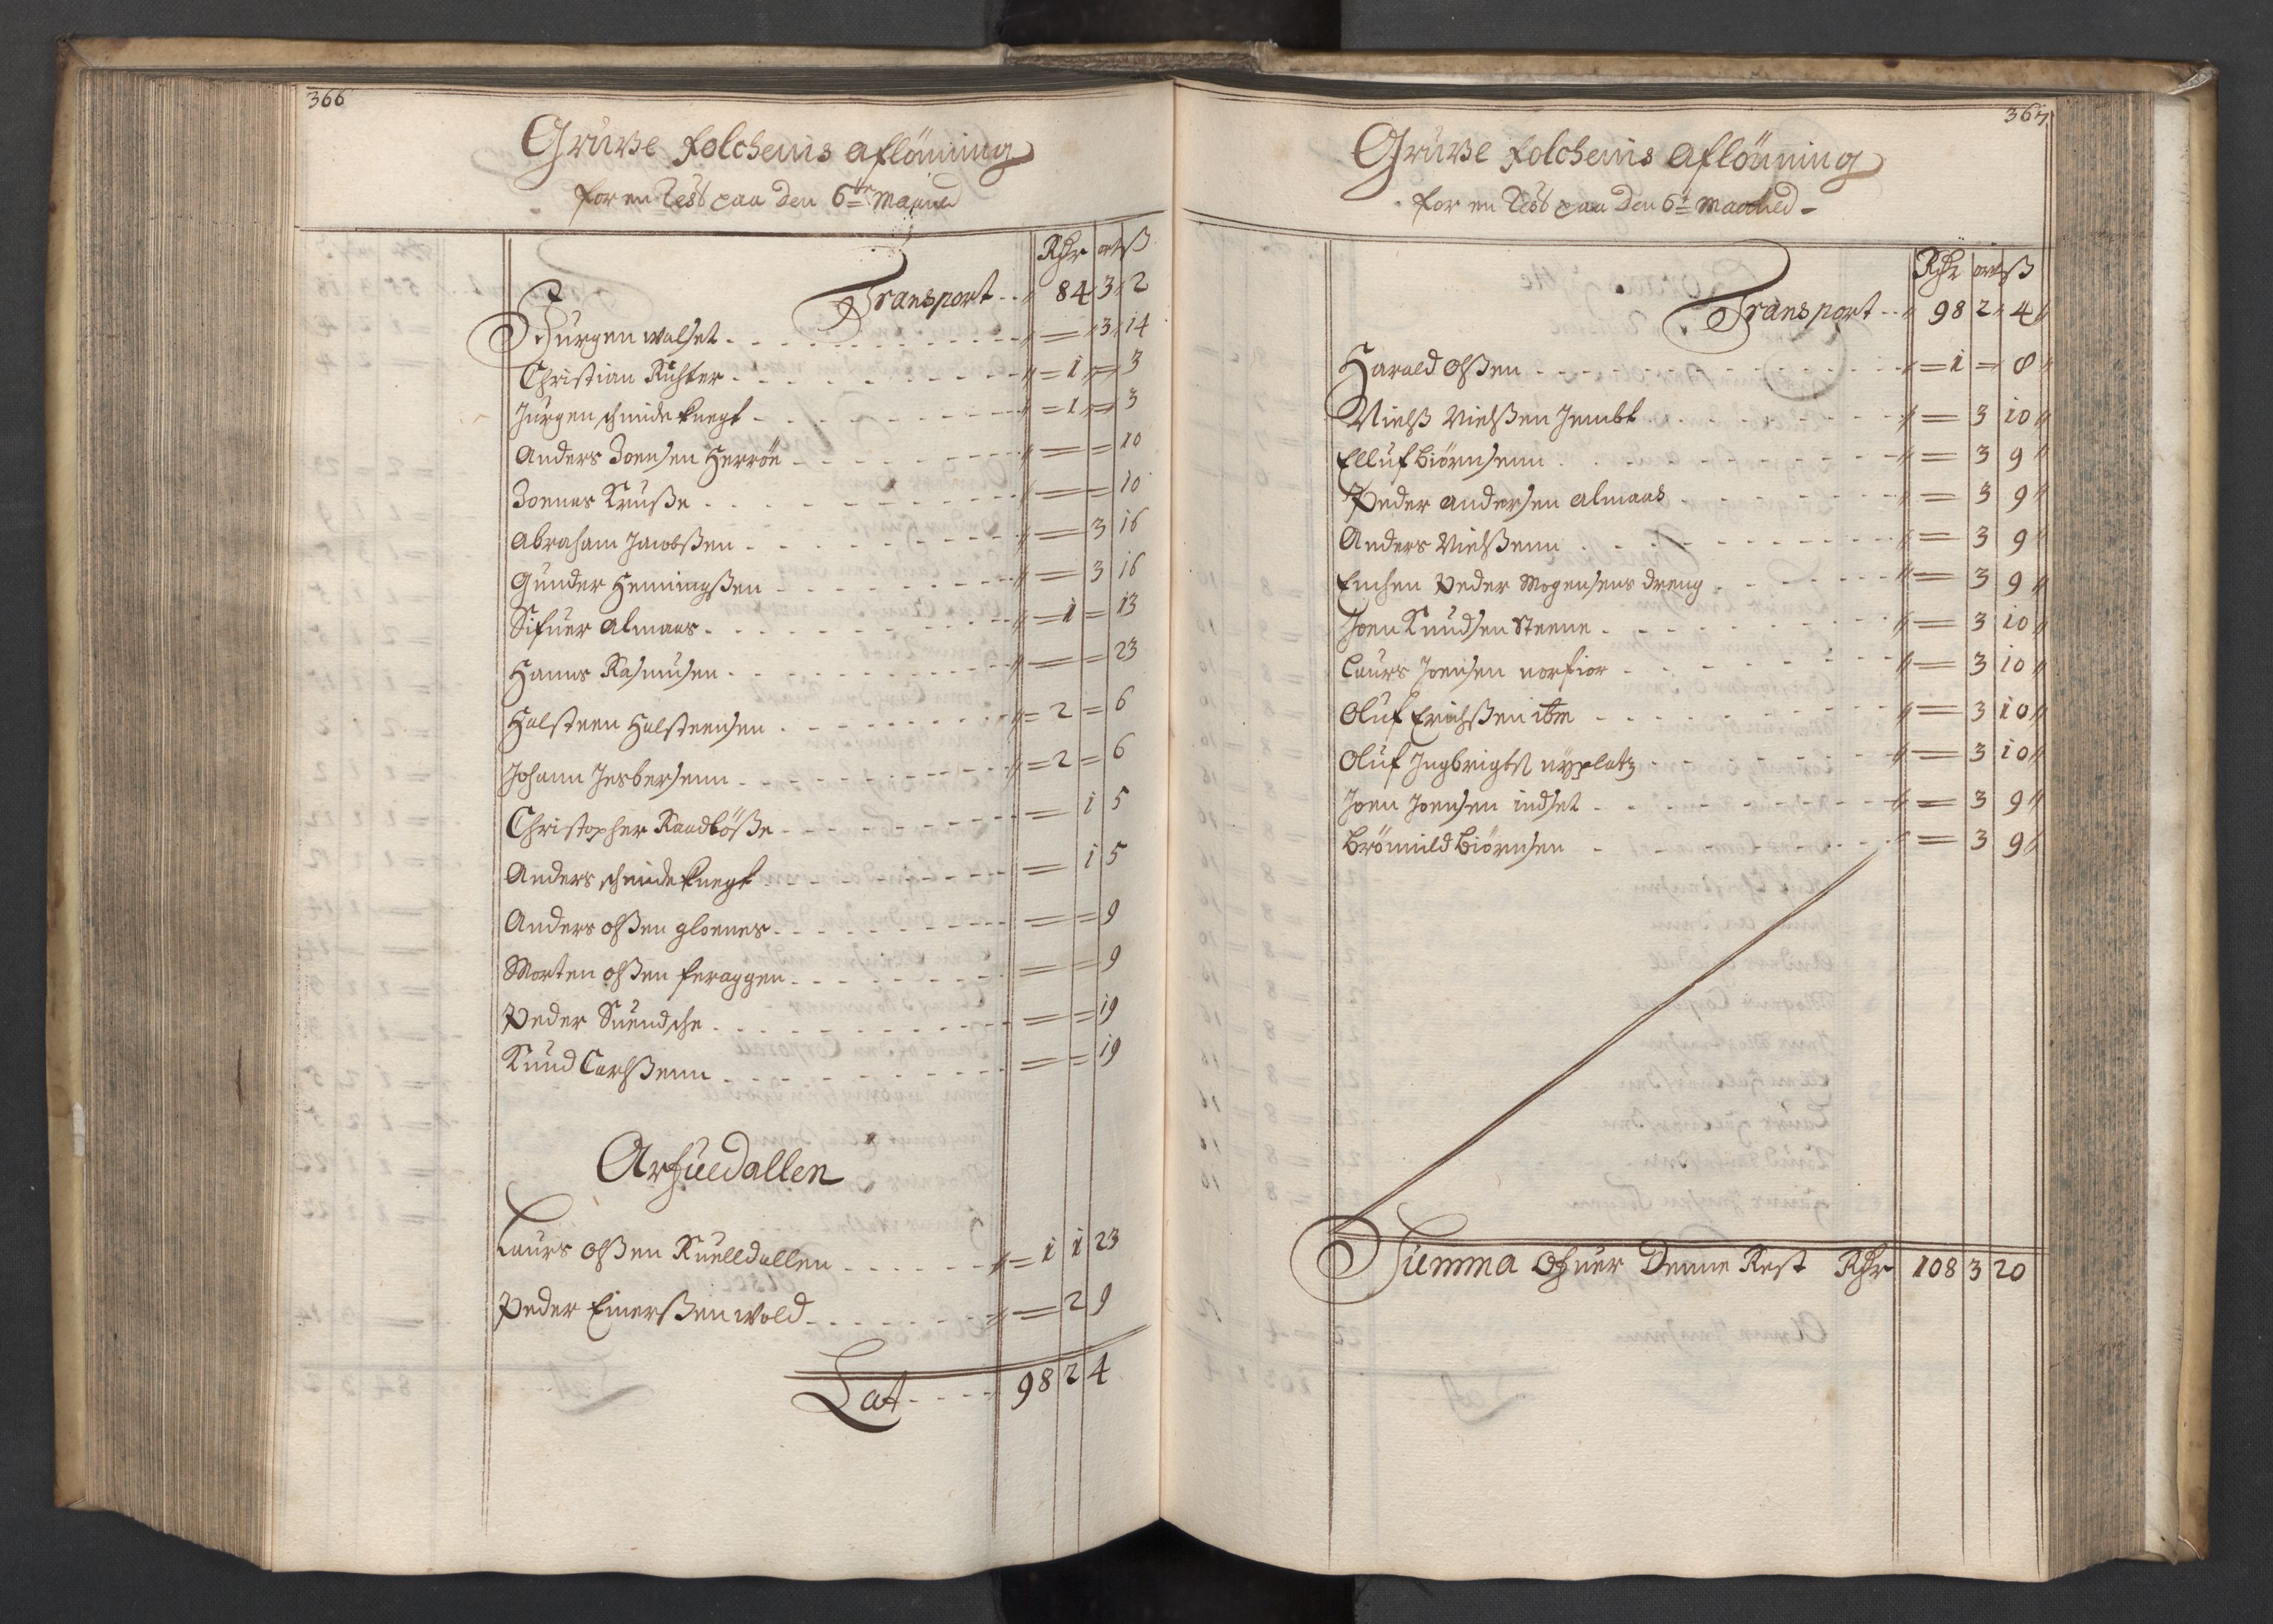 366
Gruve folchenis aflönning
for en Rest paa den 6te Maaned
Rdr ort ß
Transport 84 3 2
Jürgen walset = 3 14
Christian Richter = 1 = 3
Jürgen schmide knegt = 1 = 3
Anders Joensen Herröe = = 10
Joenas Kruße = = 10
Abraham Jacobßen = 3 16
Gunder Henningßen = 3 16
Sifuer Almaas = 1 = 13
Hanns Rasmusen = = 23
Halsteen Halsteensen = 2 = 6
Johann Jesbersenn = 2 = 6
Christopher Raadböße = 1 5
Anders schmide knegt = 1 5
Anders Olßen gloenes = = 9
Morten olßen feraggen = = 9
Peder Suendsche = = 19
Knud Carlßenn = = 19
Arfuedallen
Laurs Olßen Kuelldallen = 1 1 23
Peder Einerßen wold = 2 9
Lat 98 2 4
367
Gruve folchenis Aflönning
for en Rest paa den 6te Maaned
Rdr ort ß
Transport 98 2 4
Harald Olßen = 1 = 8
Nielß Nielßen Jembt = 3 10
Elluf Biörnsenn = 3 9
Peder Andersen Almaas = 3 9
Anders Nielßenn = 3 9
Enchen Peder Mogensens dreng = 3 9
Joen Knudsen Steene = 3 10
Laurs Joensen norfior = 3 10
Oluf Erichßen ibm = 3 10
Oluf Ingbrigtß nyplatz = 3 10
Joen Joensen indset = 3 9
Brömild Biörnsen = 3 9
Summa Ofuer Denne Rest Rdr 108 3 20